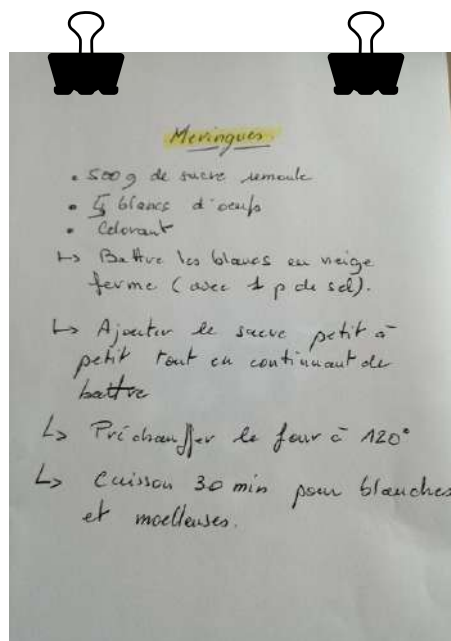 Meringues
• 500 g de sucre semoule
• 5 blancs d'oeufs
• Colorant
↳ Battre les blancs en neige
ferme (avec 1 p de sel).
↳ Ajouter le sucre petit à
petit tout en continuant de
battre
↳ Préchauffer le four à 120°
↳ Cuisson 30 min pour blanches
et moelleuses.